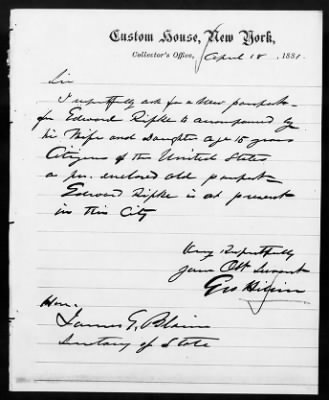 Custom House, New York,
Collector's Office, April 18, 1881.
Sir
I respectfully ask for a New passport
for Edward Ripke to accompanied by
his Wife and Daughter age 15 years
Citizens of the United States
as per. enclosed old passport
Edward Ripke is at present
in this City
Very Respectfully
your Obt Servant
Geo
Hon.
James G. Blain
Secretary of State